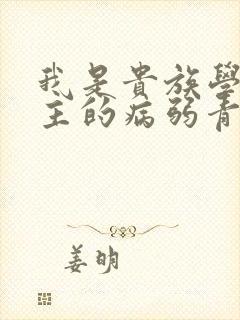 我是貴族學
主的病弱青
姜明